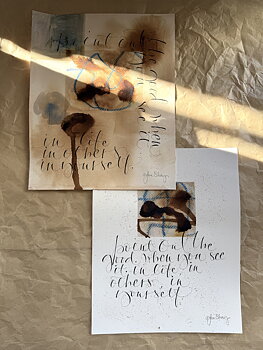 point out
the good when
you see
it
in life
in others
in yourself.
point out the
good. when you see
it. in life. in
others. in
yourself.